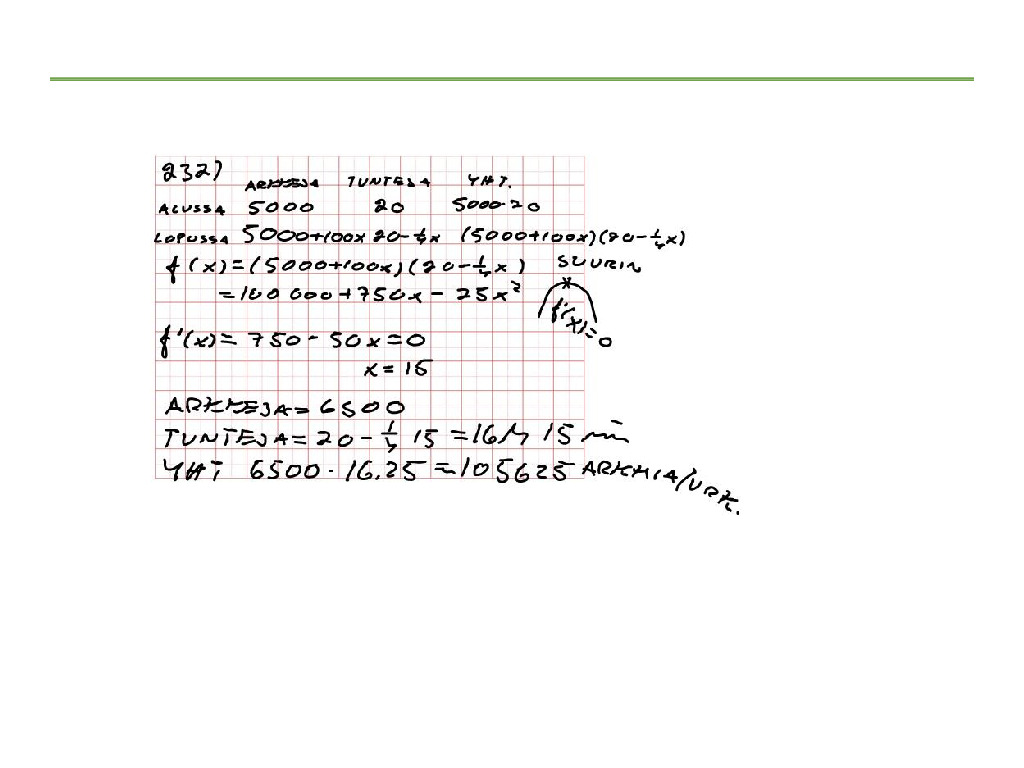 232)
ARKKEJA TUNTEJA YHT.
ALUSSA 5000 20 5000·20
LOPUSSA 5000+100x 20-¼x (5000+100x)(20-¼x)
f(x)=(5000+100x)(20-¼x) SUURIN
=100 000+750x-25x² f'(x)=0
f'(x)= 750-50x=0
x=15
ARKKEJA=6500
TUNTEJA=20-¼ 15 =16h 15 min
YHT 6500·16.25=105625 ARKKIA/VRK.